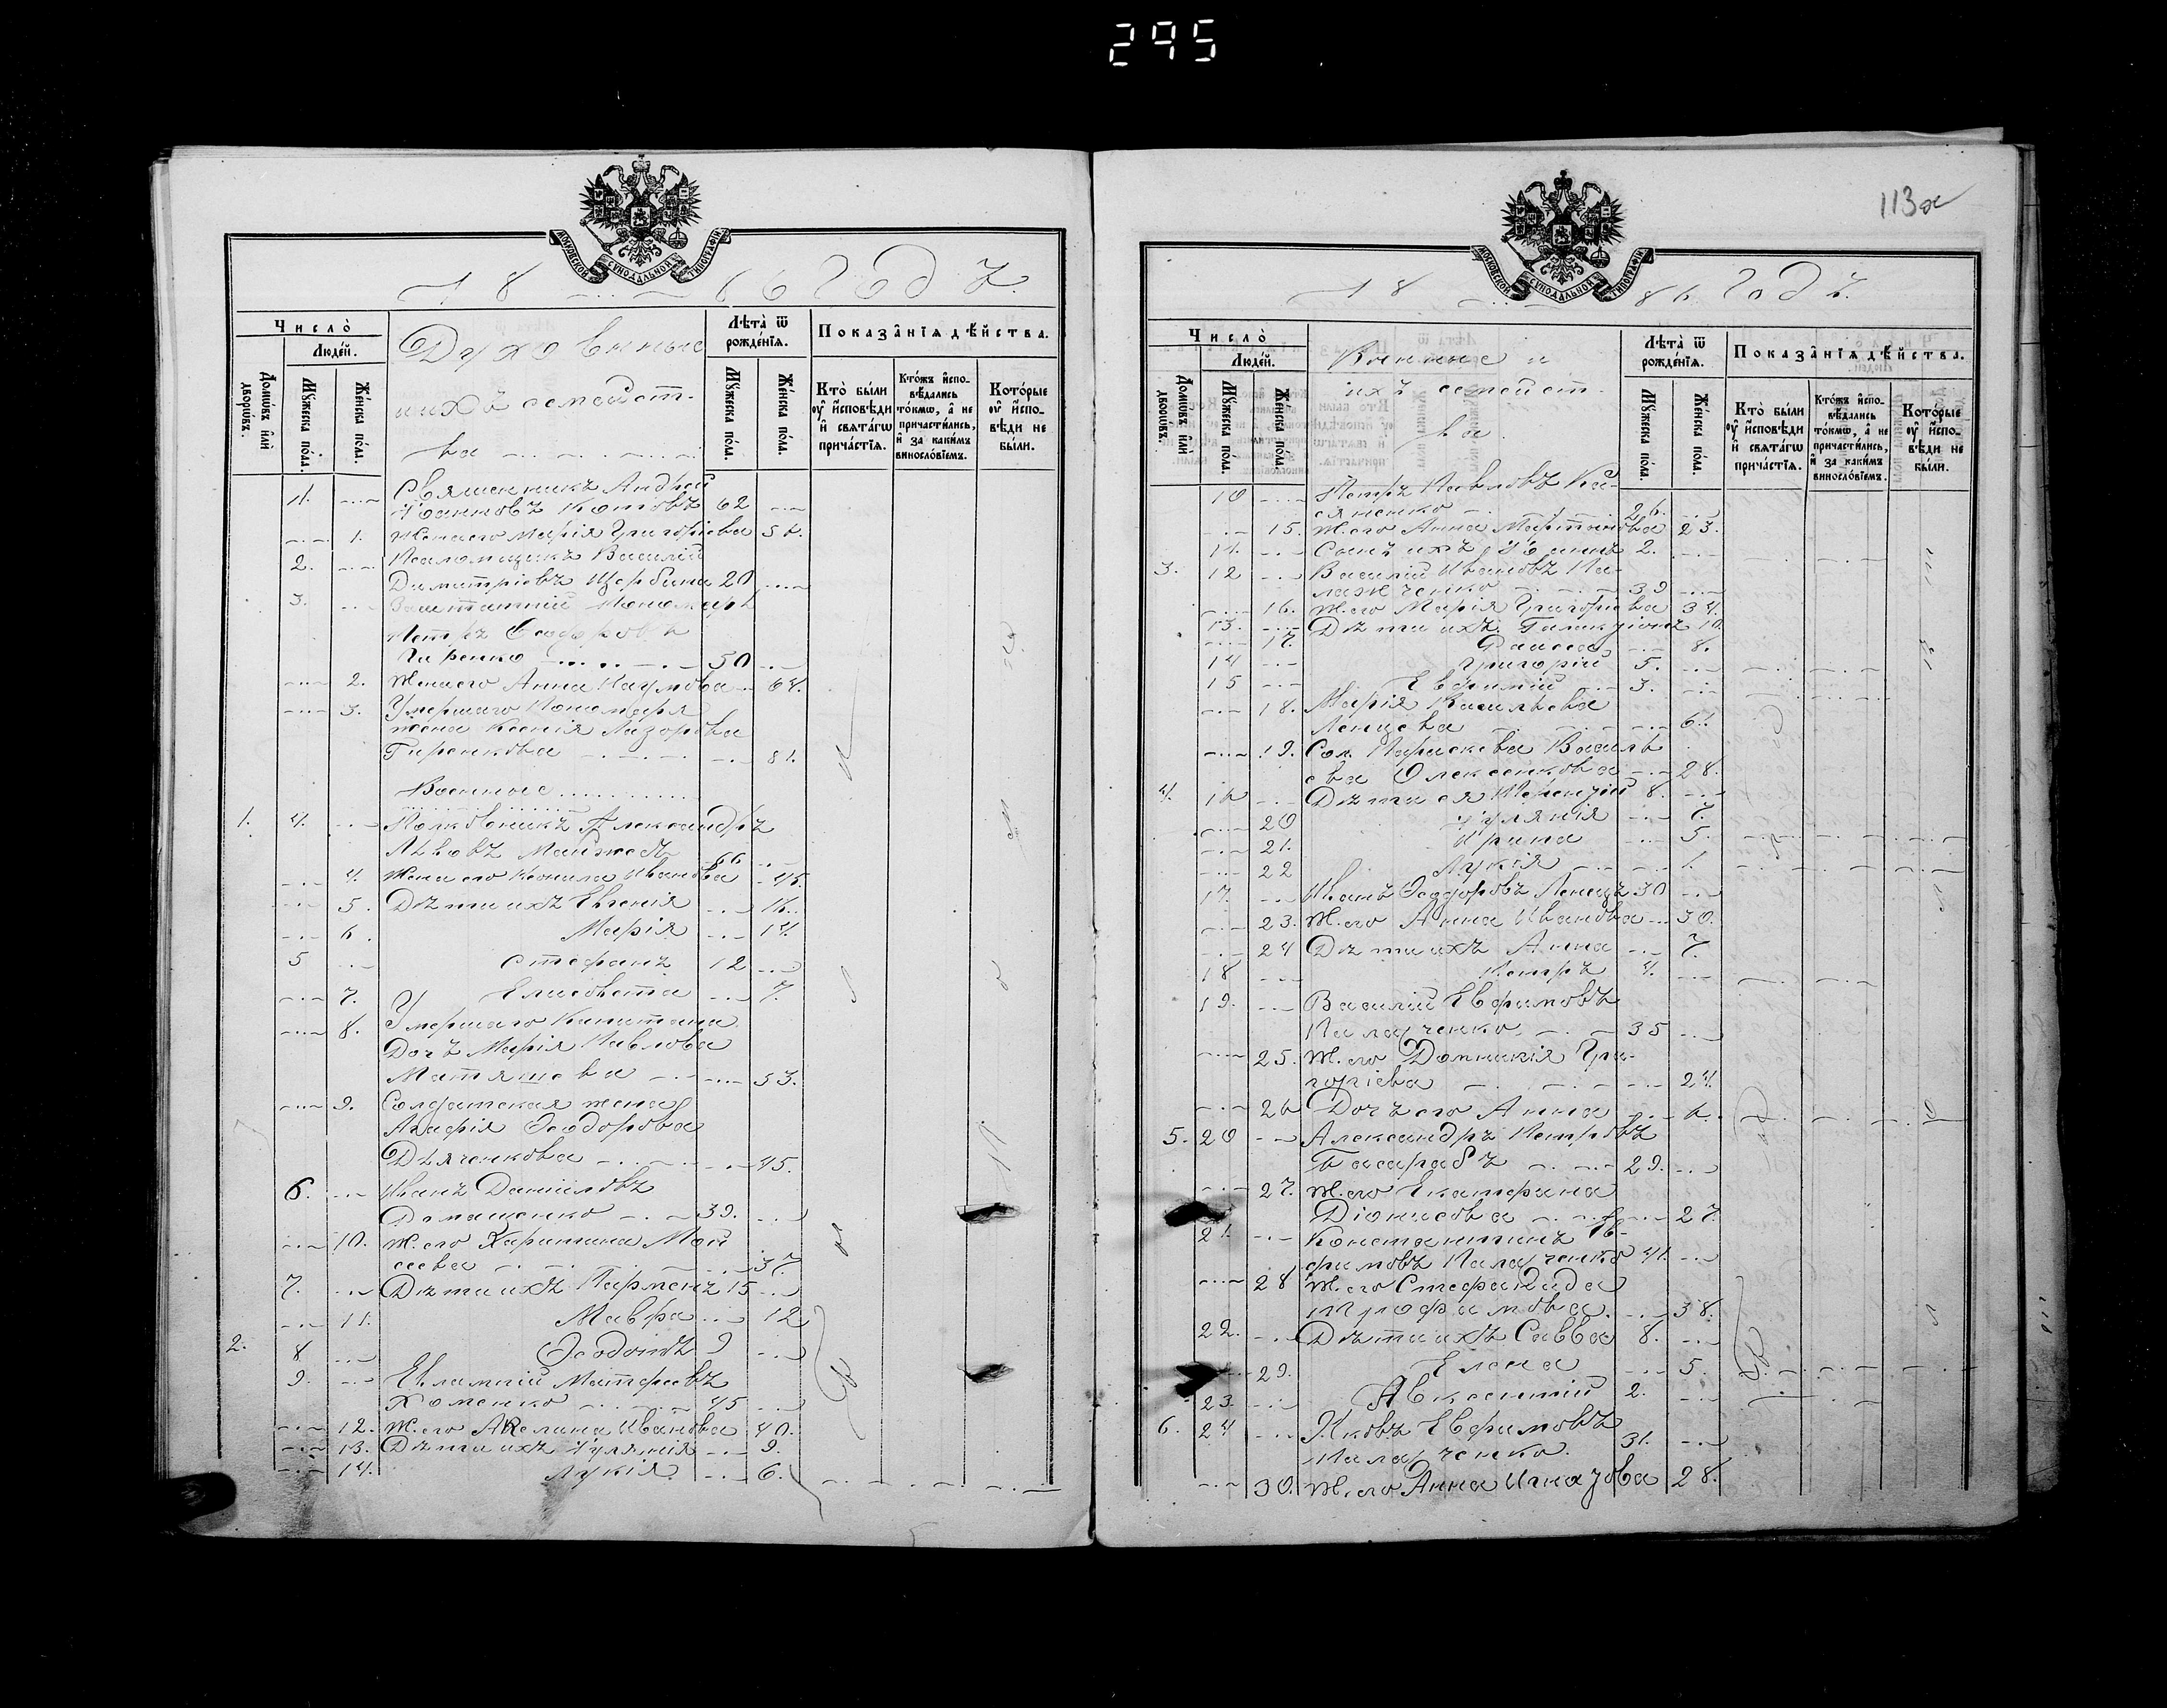 295
МОСКОВСКОЙ СѴНОДАЛЬНОЙ ТИПОГРАФІИ
18 86 Годъ.
Число̀
Людей.
Домѡвъ и҆лѝ дворѡвъ.
Мꙋжеска по́ла.
Же́нска по́ла.
Духовные
ихъ семейст-
ва
Лѣта̀ ѿ рожде́нїѧ.
Мꙋжеска по́ла.
Же́нска по́ла.
Показа̂нїѧ дѣ́йства.
Кто̀ бы́ли ᲂу҆ и҆сповѣди и҆ свѧта́гѡ прича́стїѧ.
Кто́жъ и҆спо-вѣдались то́кмѡ, а҆ не причасти́лись, и҆ за каки́мъ винословїемъ.
Кото́рые ᲂу҆ и҆спо-вѣди не бы́ли.
1. Священникъ Андрей
Іоанновъ Котовъ 62
1. Жена его Марія Григоріева 56.
2. Псаломщикъ Василій
Димитріевъ Щербина 20
3. Заштатній Пономарь
Петръ Ѳеодоровъ
Гиренко 50
2. Жена его Анна Наумова 64.
3. Умершаго Пономаря
жена Ксенія Лазорева
Гиренкова 81.
Военные
1. 4. Полковникъ Александръ
Львовъ 66
4. Жена его Иванова 45.
5. Дѣти ихъ Евгенія 16.
6. Марія 14.
5 Стефанъ 12
7. Елисовета 7.
8. Умершаго Капитана
Дочъ Марія Павлова
53.
9. Солдатская жена
Агафія Ѳеодорова
Дяченкова 45.
6. Иванъ Даниіловъ
Домашенко 39.
10. Ж. его Харитина Мои
сеева 37.
7. Дѣти ихъ Парменъ 15
11. Мавра 12
2. 8 Ѳеодоптъ 9
9. Евлампій Матфеевъ
Хоменко 45
12. Ж. его Акелина Иванова 40.
13. Дѣти ихъ Іулянія 9.
14. Лукія 6.
113
МОСКОВСКОЙ СѴНОДАЛЬНОЙ ТИПОГРАФІИ
18 86 Годъ.
Число̀
Людей.
Домѡвъ и҆лѝ дворѡвъ.
Мꙋжеска по́ла.
Же́нска по́ла.
Военные и
ихъ семейст-
ва.
Лѣта̀ ѿ рожде́нїѧ.
Мꙋжеска по́ла.
Же́нска по́ла.
Показа̂нїѧ дѣ́йства.
Кто̀ бы́ли ᲂу҆ и҆сповѣди и҆ свѧта́гѡ прича́стїѧ.
Кто́жъ и҆спо-вѣдались то́кмѡ, а҆ не причасти́лись, и҆ за каки́мъ винословїемъ.
Кото́рые ᲂу҆ и҆спо-вѣди не бы́ли.
10 Петръ Павловъ Ка-
сяненко 26.
15. Ж. его Анна Мартинова 23.
11. Сынъ ихъ Іоаннъ 2.
3. 12 Василій Ивановъ Па-
лажченко 39
16. Ж. его Марія Григоріева 34.
13. Дѣти ихъ Галактіонъ 10
17. Раиса 8.
14 Григорій 5.
15 Евфимій 3.
18. Марія Васильева
Ленцева 61.
19. Сол. Параскева Василь
ева Олексенкова 28.
4. 16 Дѣти ея Терентій 8.
20 Іулянія 7.
21. Ирина 5.
22 Лукія 1.
17. Иванъ Ѳеодоровъ Ленецъ 30
23. Ж. его Анна Иванова 30.
24 Дѣти ихъ Анна 7.
18 Петръ 4.
19. Василій Евфимовъ
Палаченко 35
25. Ж. его Домникія Гри-
горіева 24.
26 Дочъ его Анна 6.
5. 20 Александръ Петровъ
Басарабъ 29.
27. Ж. его Екатерина
Діонисова 27.
21. Константинъ Ев-
фимовъ Палаченко 41.
28 Ж. его Стефанида
Трофимова. 38.
22. Дѣти ихъ Савва 8.
29. Елена 5.
23. Авксентій 2.
6. 24 Яковъ Евфимовъ
Палаченко. 31.
30. Ж. его Анна Игнатова 28.